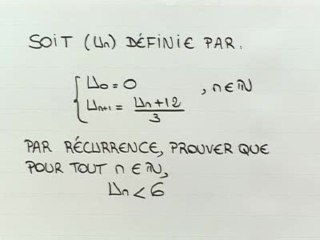 SOIT (Un) DÉFINIE PAR.
U₀ = 0
, n ∈ ℕ
Uₙ₊₁ = (Uₙ + 12) / 3
PAR RÉCURRENCE, PROUVER QUE
POUR TOUT n ∈ ℕ,
Uₙ < 6